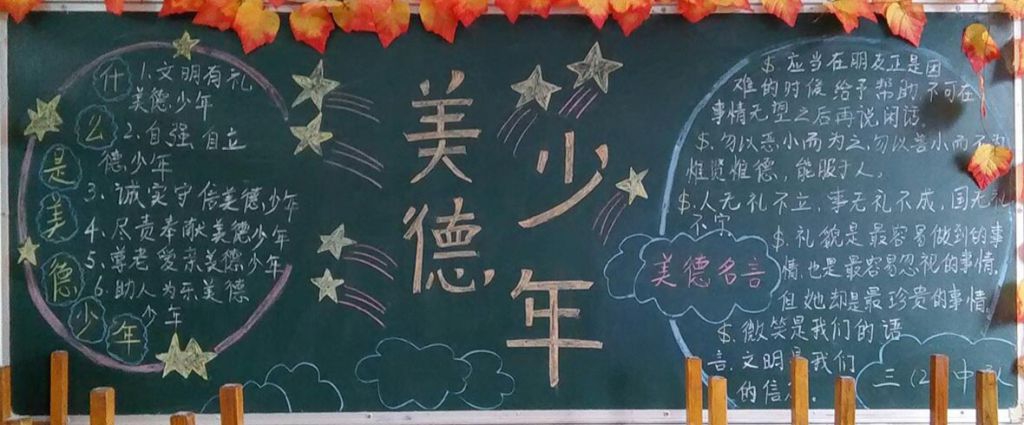 什么是美德少年
1.文明有礼
美德少年
2.自强自立
德少年
3.诚实守信美德少年
4.尽责奉献美德少年
5.尊老爱亲美德少年
6.助人为乐美德
少年
美德少年
$.应当在朋友正是困
难的时候给予帮助,不可在
事情无望之后再说闲话
$.勿以恶小而为之,勿以善小而不
惟贤惟德,能服于人,
$.人无礼不立,事无礼不成,国无礼
不宁
$.礼貌是最容易做到的事
情,也是最容易忽视的事情,
但她却是最珍贵的事情,
$.微笑是我们的语
言.文明是我们
的信
美德名言
三(2)中队